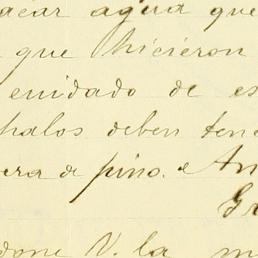 acar agua que
que hicieron
cuidado de es
halos deben tene
era de pino. e An
Gr
done V. la m